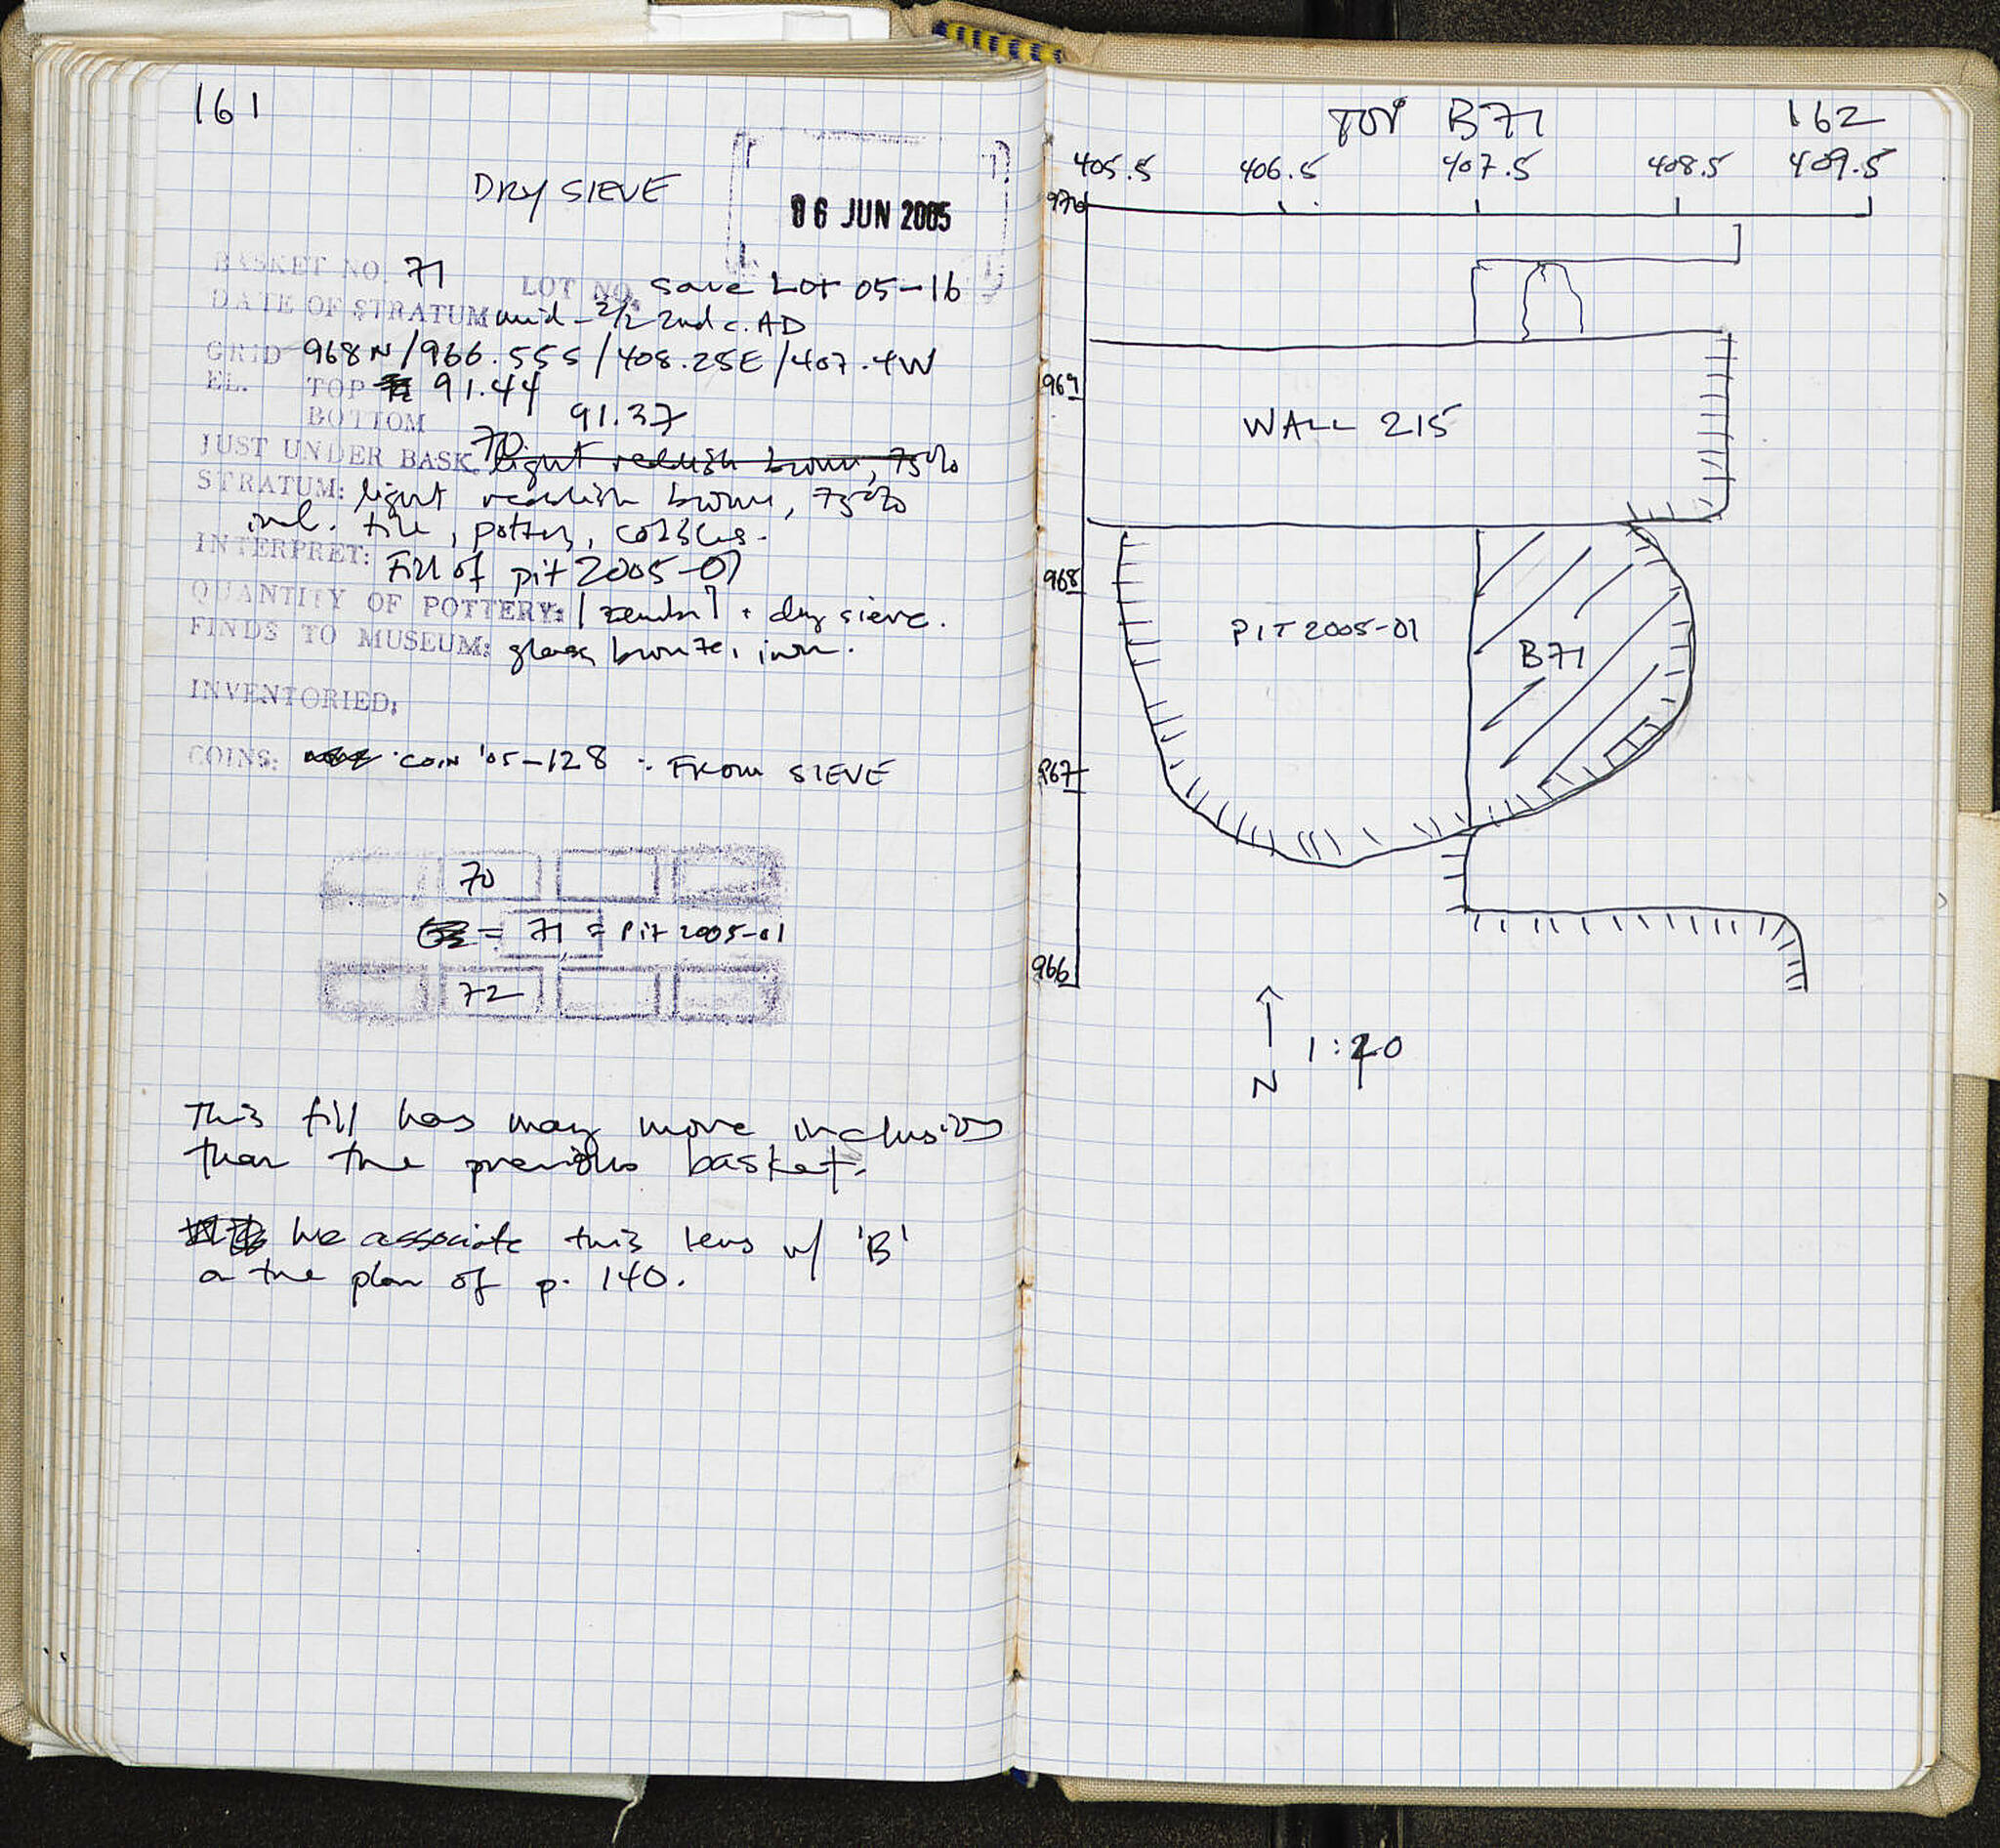 161
DRY SIEVE
06 JUN 2005
BASKET NO. 71 LOT NO. save Lot 05-16
DATE OF STRATUM mid - 2/2 2nd c. AD
GRID 968N/966.55S/408.25E/407.4W
EL. TOP 91.44
BOTTOM 91.37
JUST UNDER BASK. 70 light reddish brown, 75%
STRATUM: light reddish brown, 75%
incl. tile, pottery, cobbles.
INTERPRET: Fill of pit 2005-01
QUANTITY OF POTTERY: 1 zembil + dry sieve.
FINDS TO MUSEUM: glass, bronze, iron.
INVENTORIED:
COINS: COIN '05-128 : FROM SIEVE
70
= 71 = Pit 2005-01
72
This fill has many more inclusions
than the previous basket.
We associate this lens w/ 'B'
on the plan of p. 140.
TOP B71 162
405.5 406.5 407.5 408.5 409.5
970
969
WALL 215
968
PIT 2005-01
B71
967
966
N
1:20